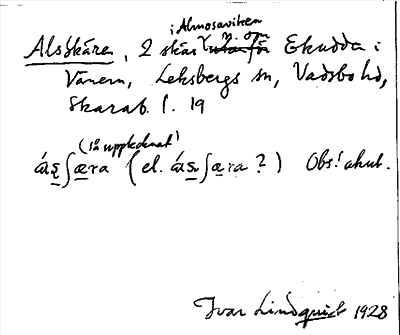 i Almosaviken
Alsskären, 2 skär n. om Ekudden i
Vänern, Leksbergs sn, Vadsbo hd,
Skarab. l. 19
(så uppteknat)
ás̱ʃæra (el. ás̱ʃæra ?) Obs! akut.
Ivar Lindquist 1928